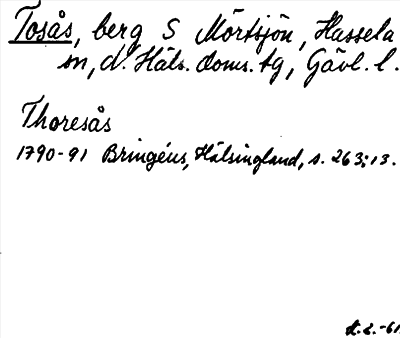 Tosås, berg S Mörtsjön, Hassela
sn, d. Häls. doms. tg, Gävl. l.
Thoresås
1790-91 Bringéus, Hälsingland, s. 263:13.
-61